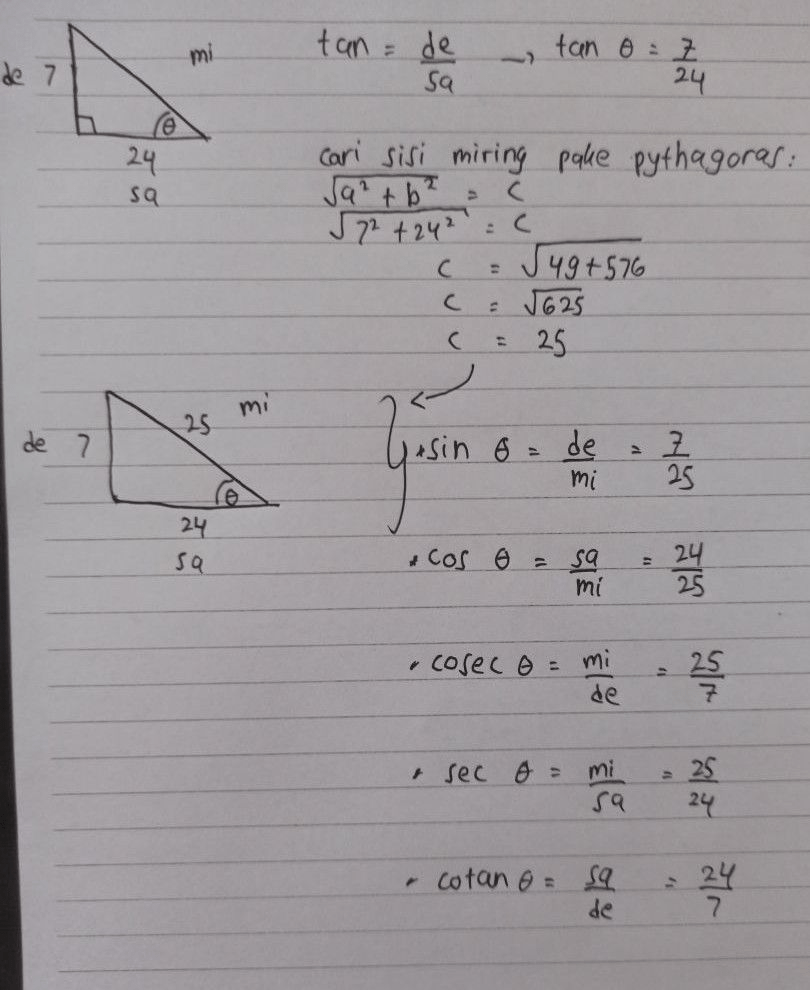 de 7 mi
θ
24
sa
tan = de/sa → tan θ = 7/24
cari sisi miring pake pythagoras:
√a² + b² = c
√7² + 24² = c
c = √49+576
c = √625
c = 25
de 7 25 mi
θ
24
sa
* sin θ = de/mi = 7/25
* cos θ = sa/mi = 24/25
* cosec θ = mi/de = 25/7
* sec θ = mi/sa = 25/24
* cotan θ = sa/de = 24/7